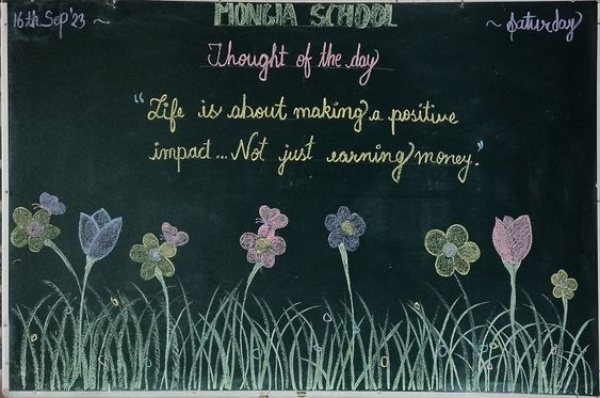 MONGIA SCHOOL
16th Sep'23 ~
~ Saturday
Thought of the day
"Life is about making a positive
impact... Not just earning money."